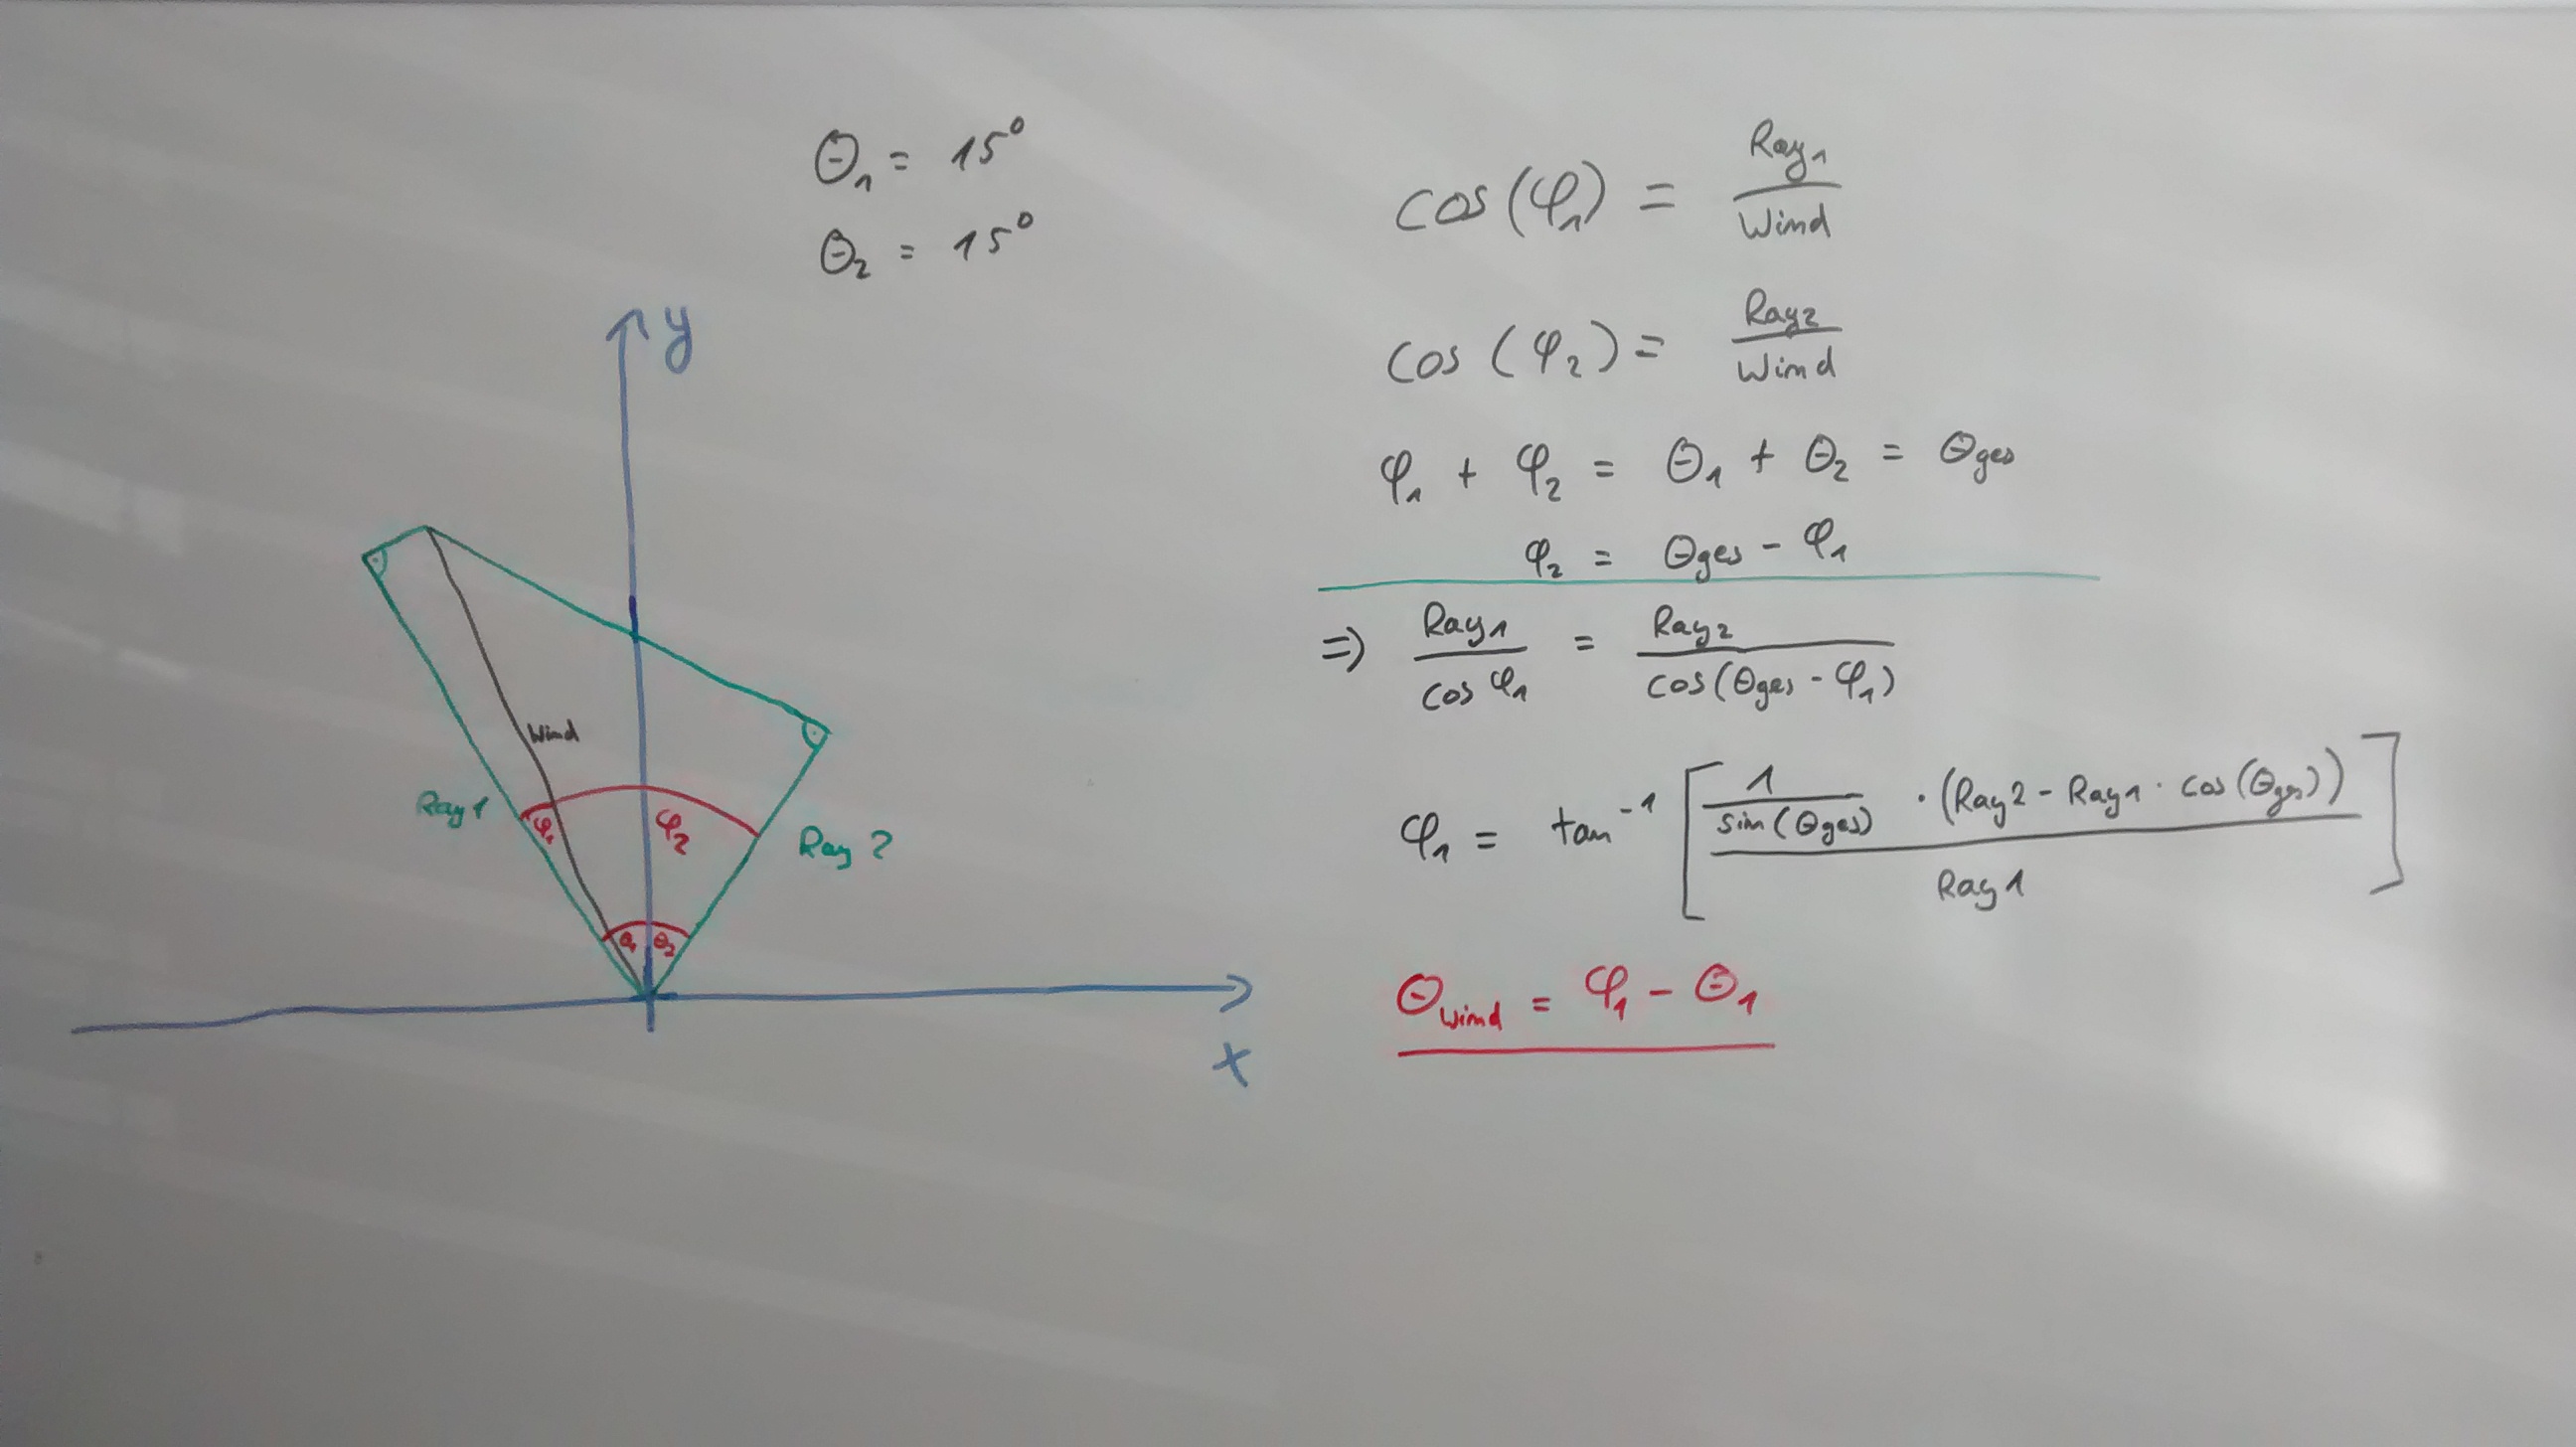 Θ₁ = 15°
Θ₂ = 15°
y
Wind
Ray 1
φ₁
φ₂
Ray 2
Θ₁ Θ₂
x
cos(φ₁) = Ray₁ / Wind
cos(φ₂) = Ray₂ / Wind
φ₁ + φ₂ = Θ₁ + Θ₂ = Θges
φ₂ = Θges - φ₁
⇒ Ray₁ / cos φ₁ = Ray₂ / cos(Θges - φ₁)
φ₁ = tan⁻¹ [ 1 / sin(Θges) · (Ray2 - Ray1 · cos(Θges)) / Ray1 ]
Θwind = φ₁ - Θ₁